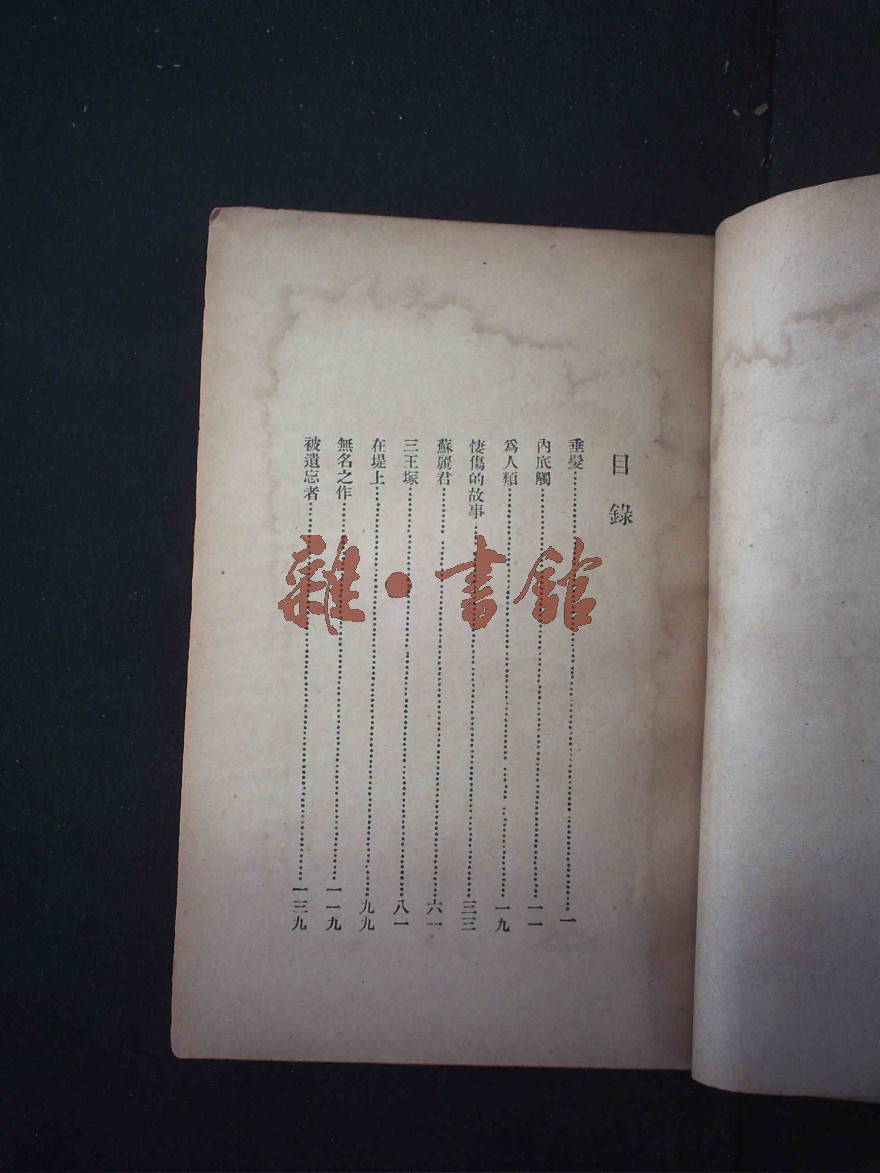 目錄
垂髮……一
內底觸……一一
爲人類……一九
悽傷的故事……三三
蘇麗君……六一
三王塚……八一
在堤上……九九
無名之作……一一九
被遺忘者……一三九
雜·書館